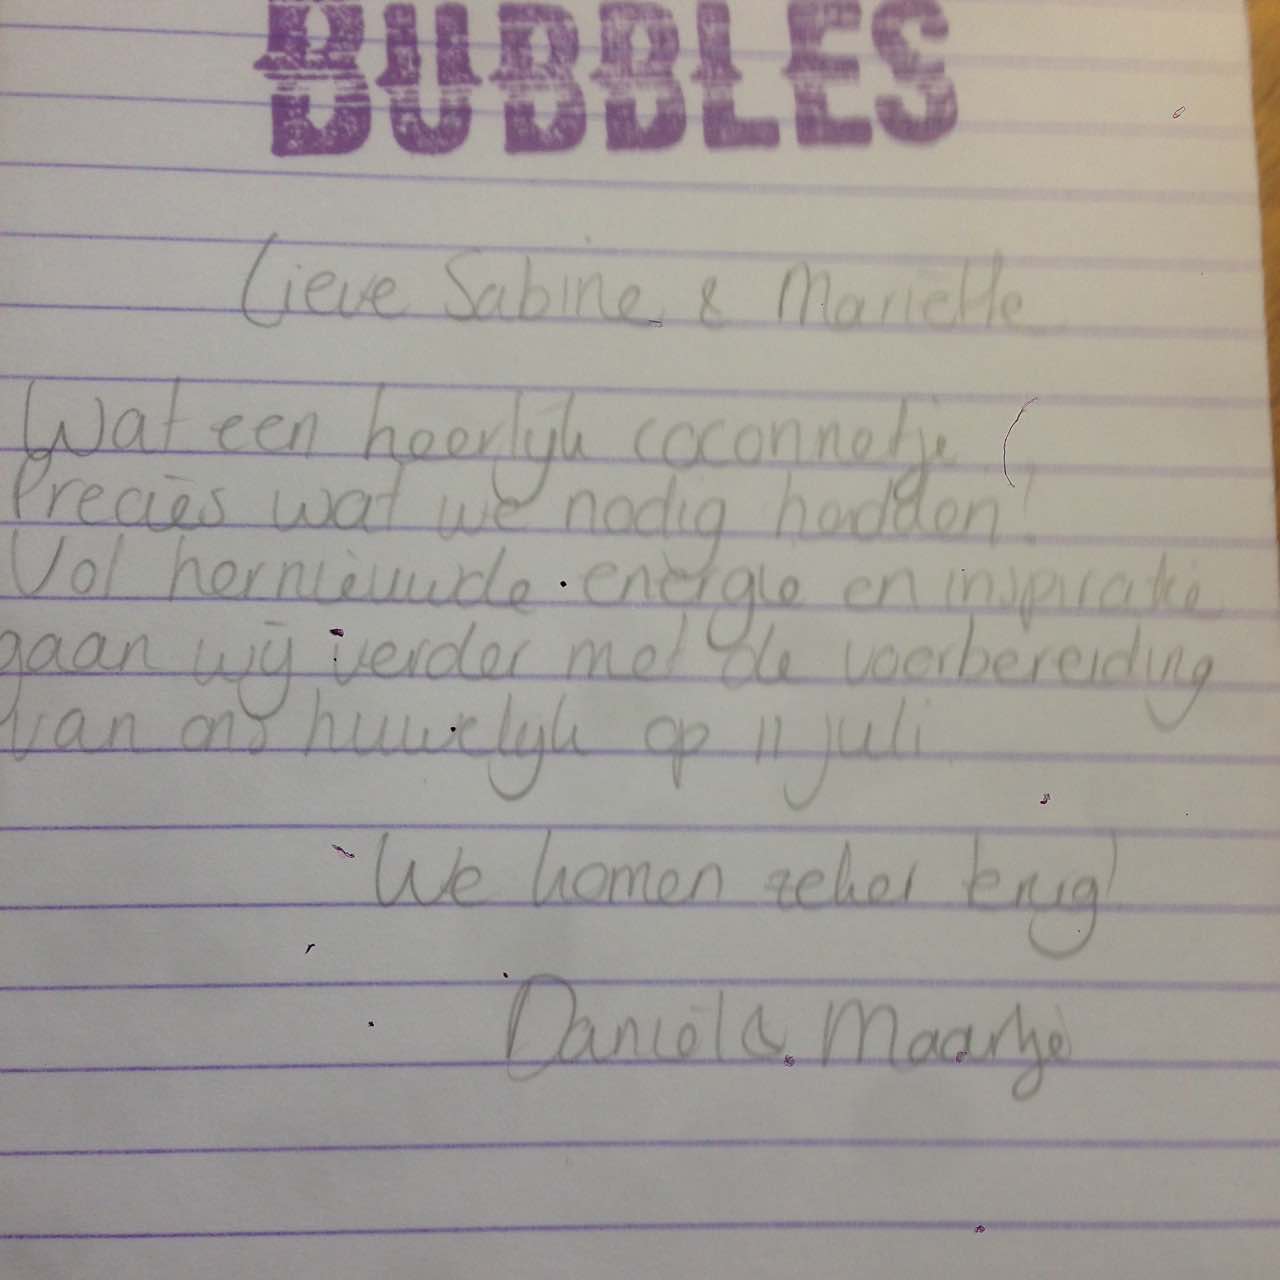 BUBBLES
Lieve Sabine & Mariëtte
Wat een heerlijk coconnetje!
Precies wat we nodig hadden!
Vol hernieuwde energie en inspiratie
gaan wij verder met de voorbereiding
van ons huwelijk op 11 juli
We komen zeker terug!
Daniël & Maartje